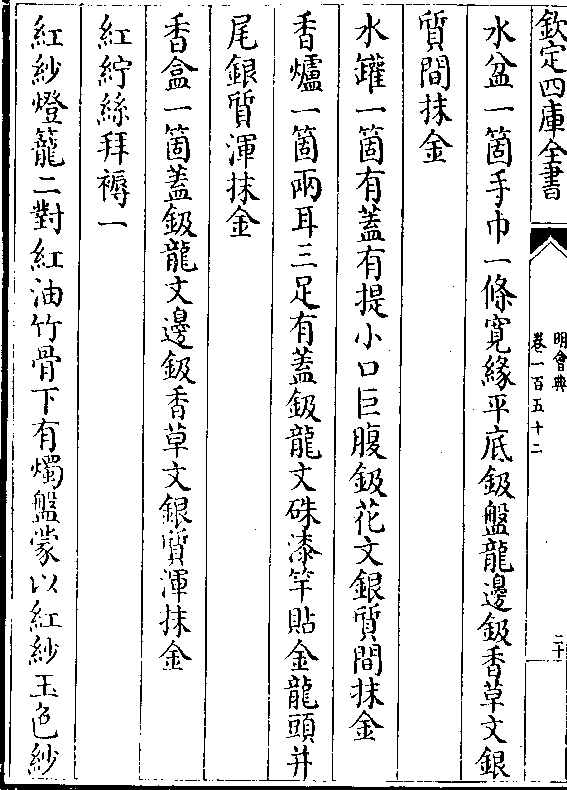 欽定四庫全書
明會典
卷一百五十二
二十
水盆一箇手巾一條寛緣平底鈒盤龍邊鈒香草文銀
質間抹金
水罐一箇有蓋有提小口巨腹鈒花文銀質間抹金
香爐一箇兩耳三足有蓋鈒龍文硃漆竿貼金龍頭并
尾銀質渾抹金
香盒一箇蓋鈒龍文邊鈒香草文銀質渾抹金
紅紵絲拜褥一
紅紗燈籠二對紅油竹骨下有燭盤蒙以紅紗玉色紗